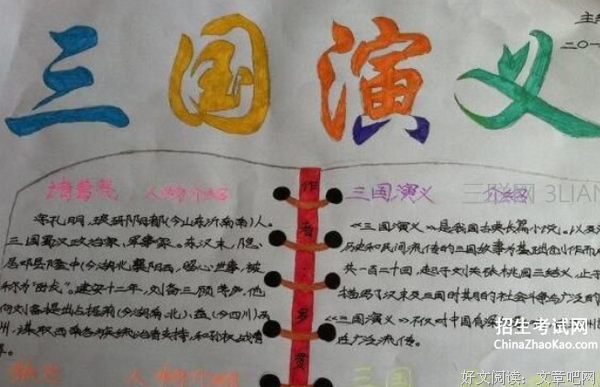 主
二〇一
三国演义
诸葛亮 人物介绍
字孔明,琅琊阳都(今山东沂南南)人。
三国蜀汉政治家、军事家。东汉末,隐
居邓县隆中(今湖北襄阳西,留心世事,被
称为"卧龙"。建安十二年,刘备三顾茅庐,他
向刘备提出占据荆(今湖南、北)、益(今四川)两
州,
和孙权
作者
罗贯
三国演义 介绍
《三国演义》是我国古典长篇小说。以
历史和民间流传的三国故事为基础
共一百二十回,起于刘关张桃园三结义,止于
描写了汉末及三国时其月的社会斗争与广泛的
《三国演义》不仅对中国有深
泛流传。
人物介绍
三国
三联网 3LIAN
招生考试网
ChinaZhaoKao.com
好文阅读:文章吧网